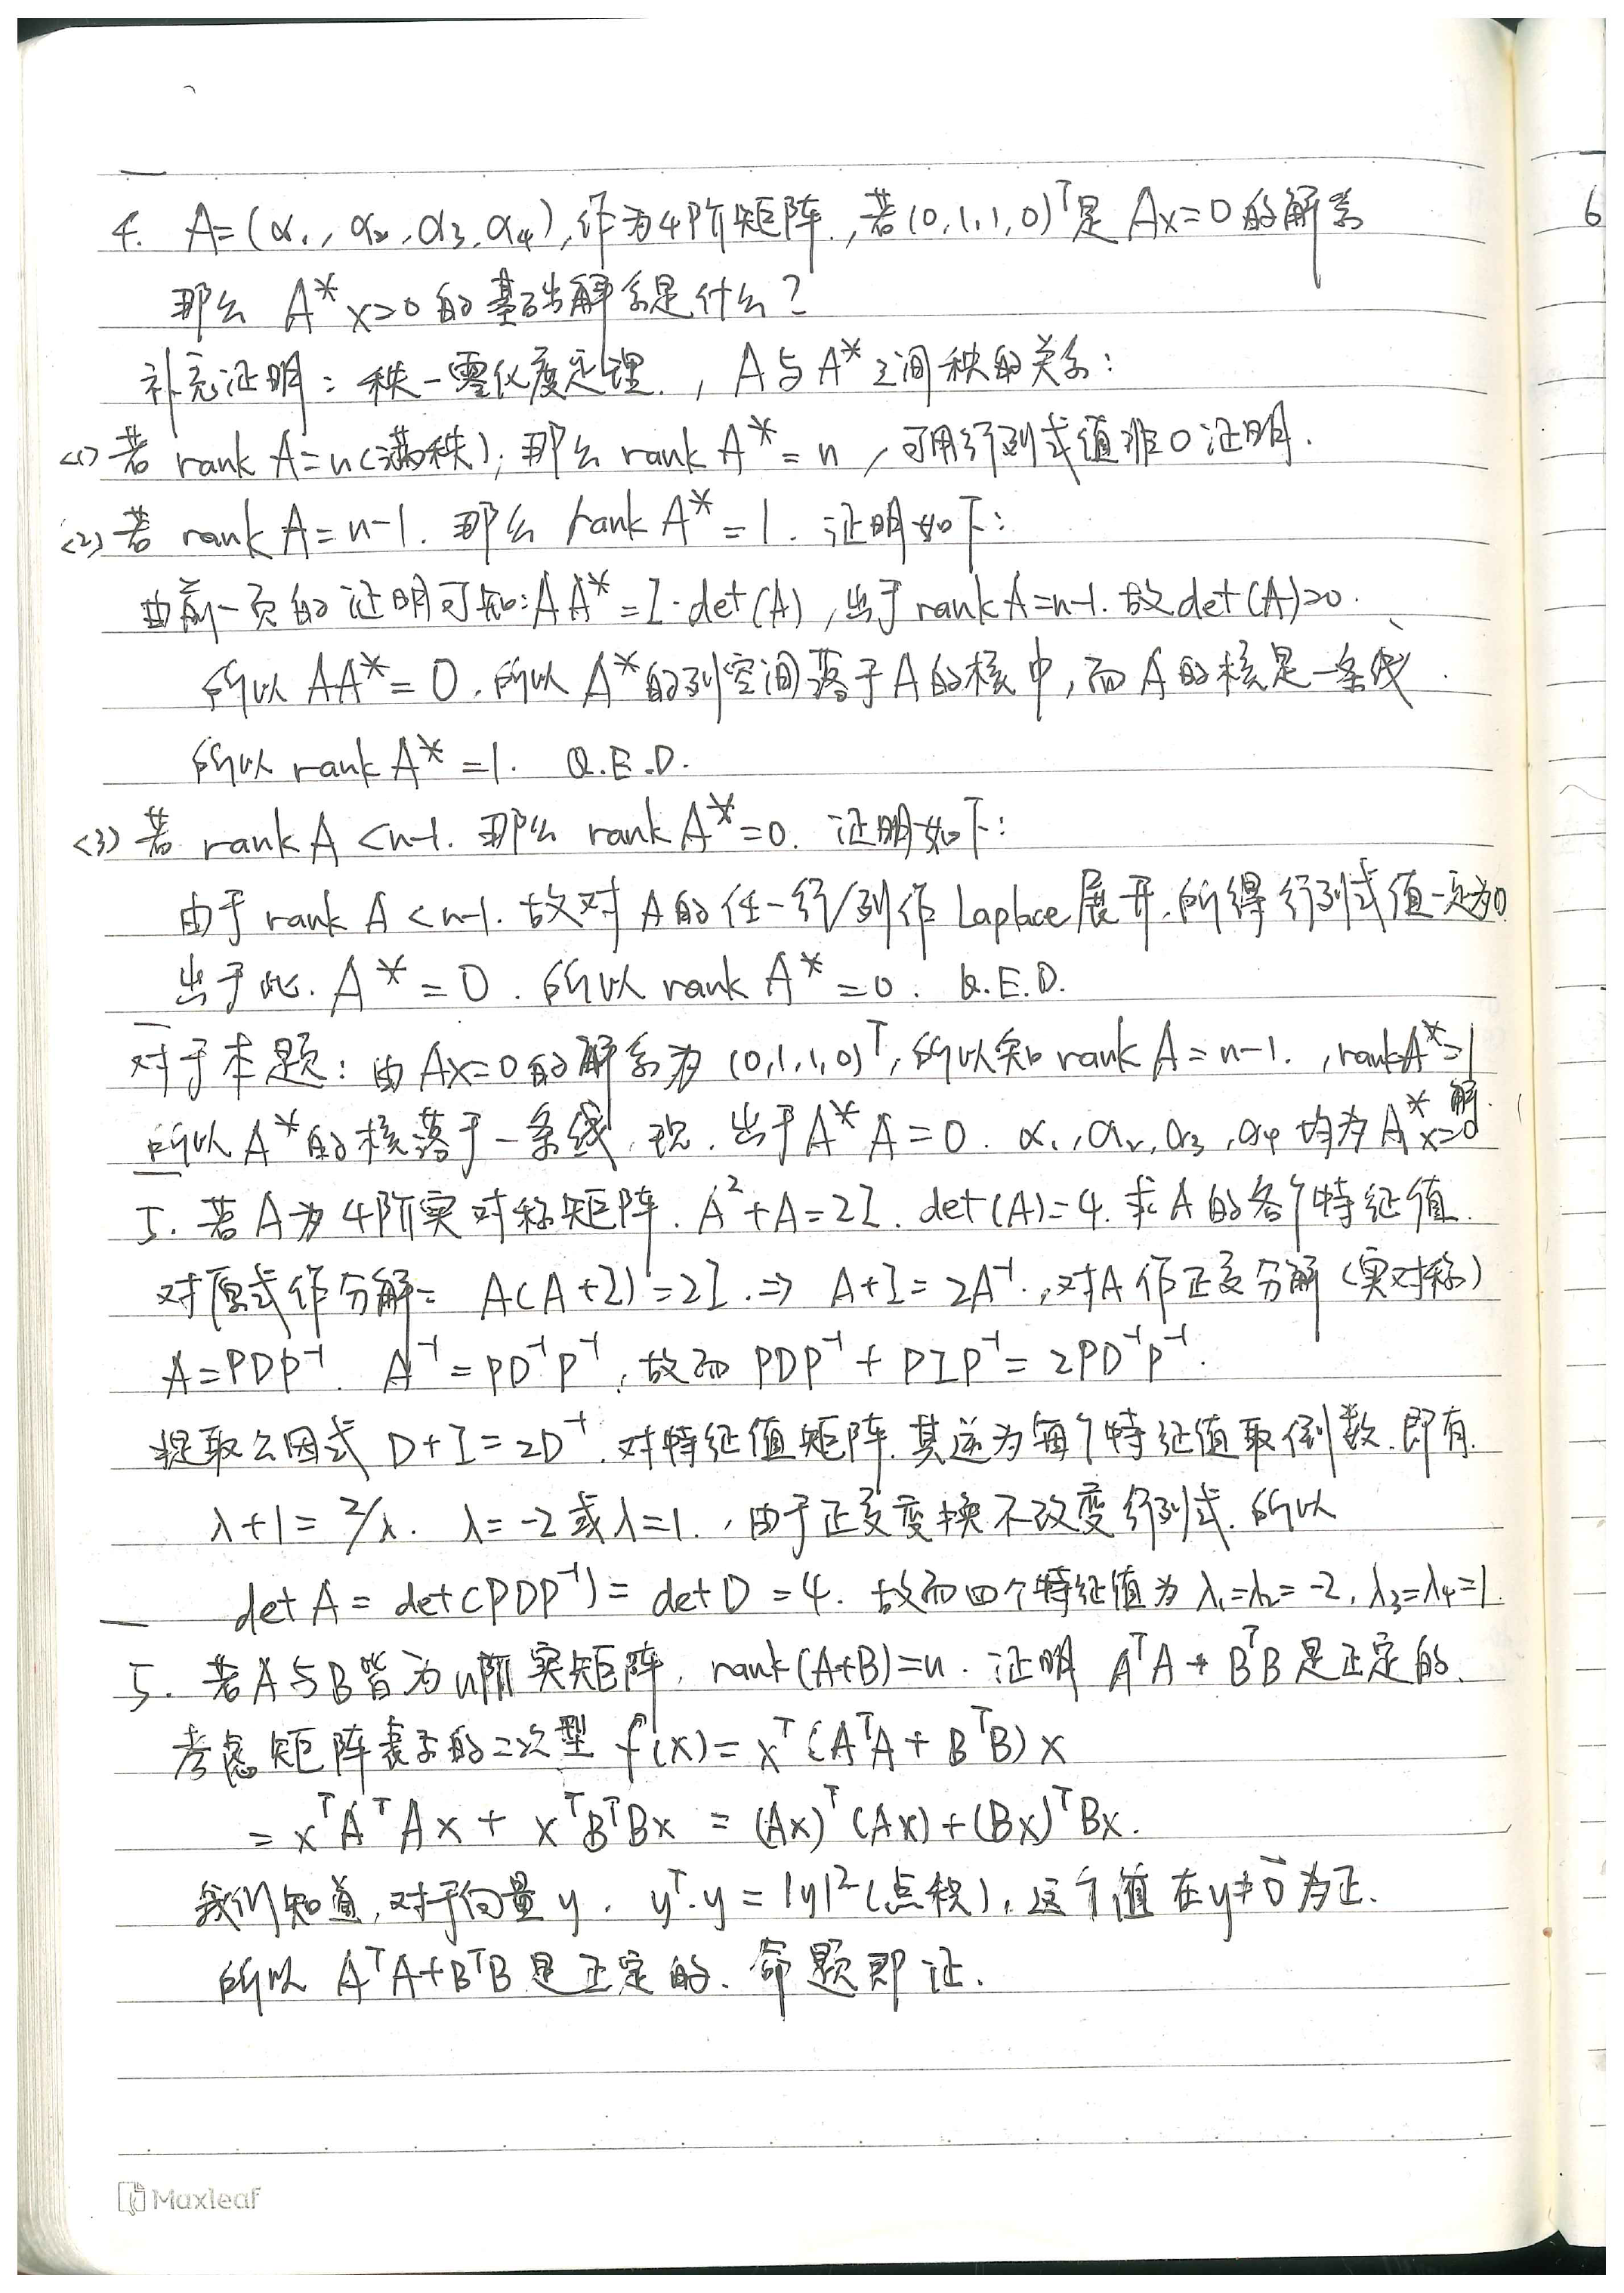 4. A=(α₁, α₂, α₃, α₄), 作为4阶矩阵, 若(0,1,1,0)ᵀ是 Ax=0 的解系
6
那么 A* x=0 的基础解系是什么?
补充证明: 秩一零化度定理, A与A*之间秩的关系:
<1> 若 rank A=n(满秩), 那么 rank A* = n, 可用行列式值非0证明.
<2> 若 rank A=n-1. 那么 rank A* = 1. 证明如下:
由前一页的证明可知: AA* = I·det(A), 出于 rank A=n-1. 故 det(A)=0.
所以 AA* = 0. 所以 A*的列空间落于A的核中, 而A的核是一条线.
所以 rank A* =1. Q.E.D.
<3> 若 rank A <n-1. 那么 rank A*=0. 证明如下:
由于 rank A <n-1. 故对A的任一行/列作 Laplace 展开. 所得行列式值一定为0
出于此. A* = 0. 所以 rank A* =0. Q.E.D.
对于本题: 由 Ax=0的解系为 (0,1,1,0)ᵀ, 所以知 rank A = n-1. , rank A*=1
所以 A*的核落于一条线, 现. 出于 A*A=0. α₁, α₂, α₃, α₄ 均为 A*x=0 解.
5. 若A为4阶实对称矩阵. A²+A=2I. det(A)=4. 求A的各个特征值.
对原式作分解: A(A+I)=2I. ⇒ A+I=2A⁻¹., 对A作正交分解 (实对称)
A=PDP⁻¹. A⁻¹=PD⁻¹P⁻¹, 故而 PDP⁻¹ + PIP⁻¹= 2PD⁻¹P⁻¹.
提取公因式 D+I=2D⁻¹. 对特征值矩阵. 其逆为每个特征值取倒数. 即有.
λ+1= 2/λ. λ=-2 或 λ=1. , 由于正交变换不改变行列式. 所以
det A = det(PDP⁻¹)= det D =4. 故而四个特征值为 λ₁=λ₂=-2, λ₃=λ₄=1.
5. 若A与B皆为n阶实矩阵, rank(A+B)=n. 证明 AᵀA+BᵀB是正定的.
考虑矩阵表示的二次型 f(x)= xᵀ(AᵀA+BᵀB)x
= xᵀAᵀAx + xᵀBᵀBx = (Ax)ᵀ(Ax)+(Bx)ᵀBx.
我们知道, 对于向量y. yᵀ·y=|y|²(点积), 这个值在y≠0⃗为正.
所以 AᵀA+BᵀB是正定的. 命题即证.
Maxleaf